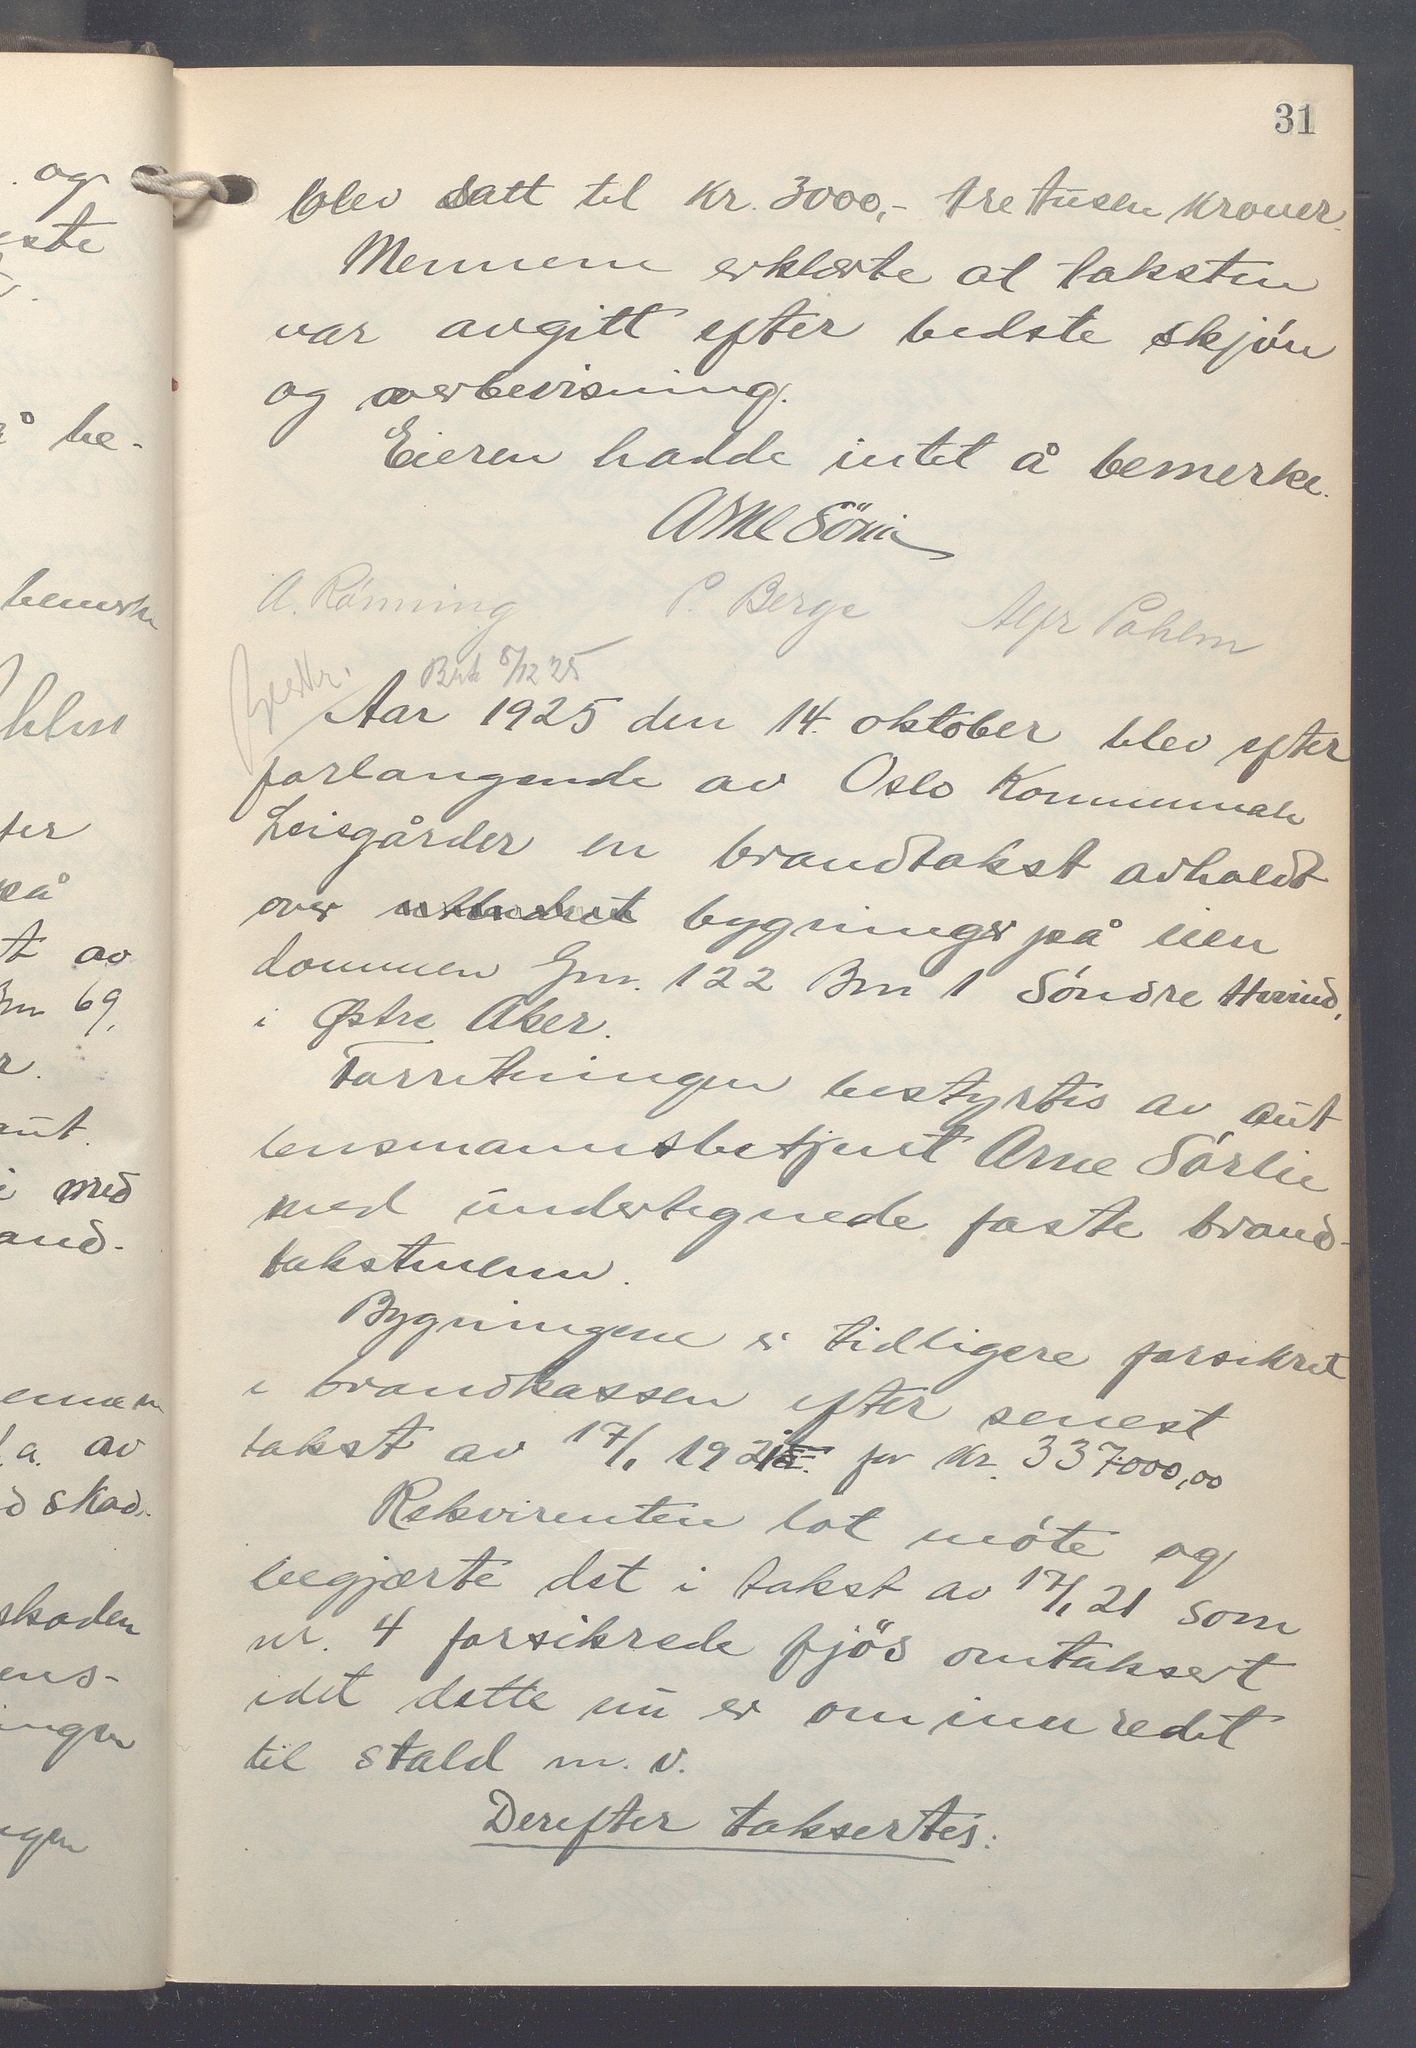 31
blev satt til Kr. 3000,- tre tusen kroner.
Mennene erklærte at taksten
var avgitt efter bedste skjøn
og overbevisning.
Eieren hadde intet å bemerke.
Arne Sörlie
A. Rønning P. Berge Alfr Pahlm
Bestkr. Brk 5/12 25
Aar 1925 den 14. oktober blev efter
forlangende av Oslo Kommunale
Leiegårder en brandtakst avholdt
over bygninger på eien
dommen Gnr. 122 Bnr 1 Söndre Hovind,
i Østre Aker.
Forretningen bestyrtes av aut
lensmannsbetjent Arne Sörlie
med undertegnede faste brand-
takstmenn.
Bygningene er tidligere forsikret
i brandkassen efter senest
takst av 17/1 1921 for Kr. 337000,00
Rekvirenten lot möte og
begjærte det i takst av 17/1 21 som
nr. 4 forsikrede fjös omtaksert
idet dette nu er ominnredet
til stald m. v.
Derefter taksertes:
og
este
å be-
bemerke
ahlm
ter
på
t av
Bnr 69,
r.
aut.
i med
and-
av
d skad.
skaden
ens-
ingen
ngen